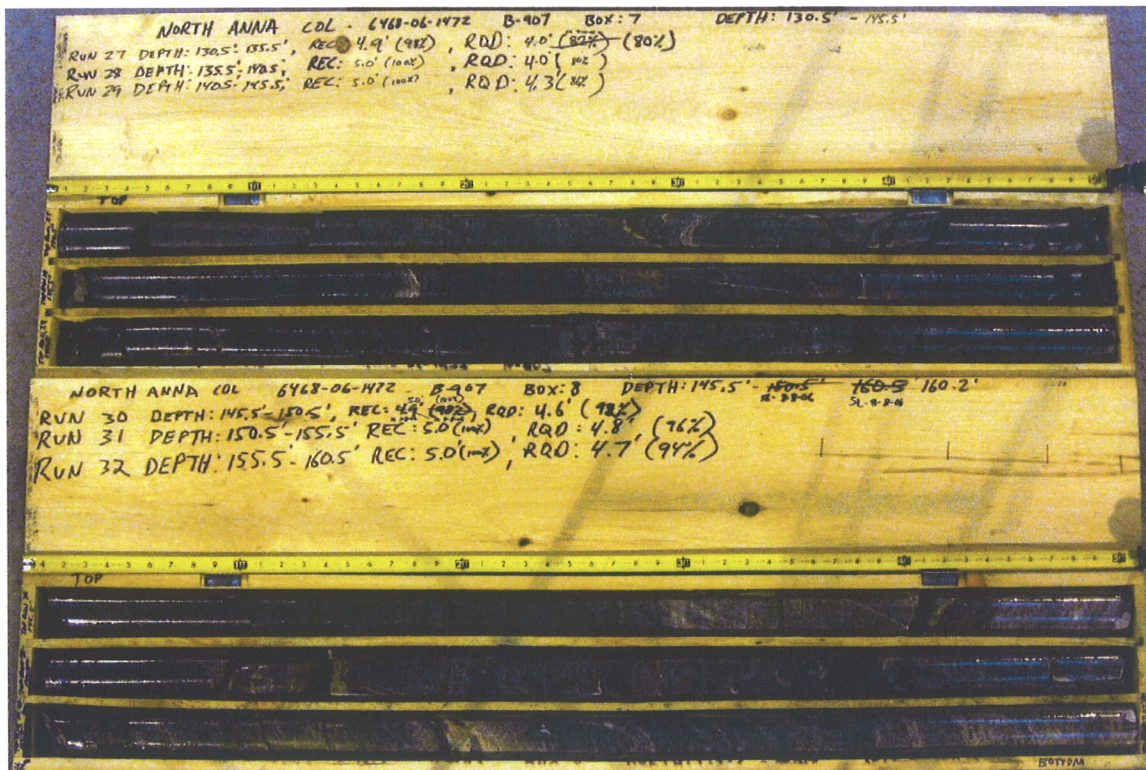 NORTH ANNA COL - 6468-06-1472 B-907 BOX: 7 DEPTH: 130.5' - 145.5'
RUN 27 DEPTH: 130.5'- 135.5', REC: 4.9' (98%), RQD: 4.0' (82%) (80%)
RUN 28 DEPTH: 135.5'- 140.5', REC: 5.0' (100%), RQD: 4.0' (80%)
RUN 29 DEPTH: 140.5'- 145.5', REC: 5.0' (100%), RQD: 4.3' (86%)
TOP
NORTH ANNA COL 6468-06-1472 - B-907 BOX: 8 DEPTH: 145.5' - 150.5' 160.5 160.2'
SL-8-8-06 SL-8-8-06
5.0' (100%)
RUN 30 DEPTH: 145.5'-150.5', REC: 4.9' (98%), RQD: 4.6' (98%)
RUN 31 DEPTH: 150.5'-155.5' REC: 5.0' (100%) RQD: 4.8' (96%)
RUN 32 DEPTH: 155.5'- 160.5' REC: 5.0' (100%), RQD: 4.7' (94%)
TOP
BOTTOM